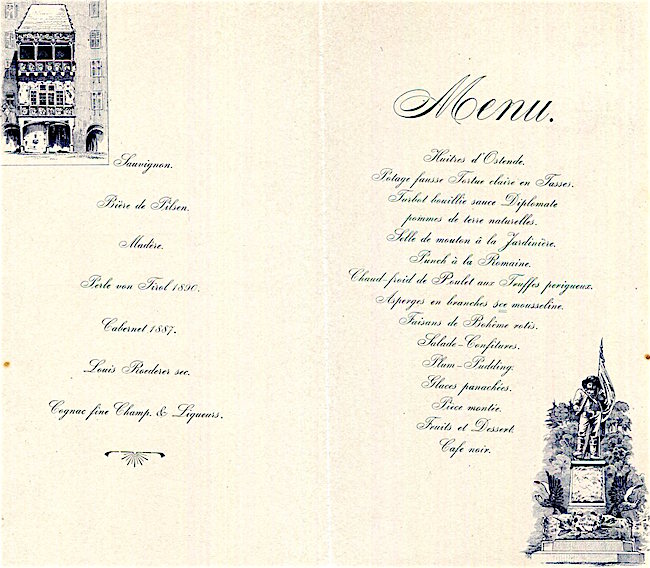 Sauvignon.
Bière de Pilsen.
Madère.
Perle von Tirol 1890.
Cabernet 1887.
Louis Roederer sec.
Cognac fine Champ. & Liqueurs.
Menu.
Huîtres d'Ostende.
Potage fausse Tortue claire en Tasses.
Turbot bouillie sauce Diplomate
pommes de terre naturelles.
Selle de mouton à la Jardinière.
Punch à la Romaine.
Chaud-froid de Poulet aux Truffes perigueux.
Asperges en branches sce mousseline.
Faisans de Bohême rotis.
Salade-Confitures.
Plum-Pudding.
Glaces panachées.
Pièce montée.
Fruits et Dessert.
Cafe noir.